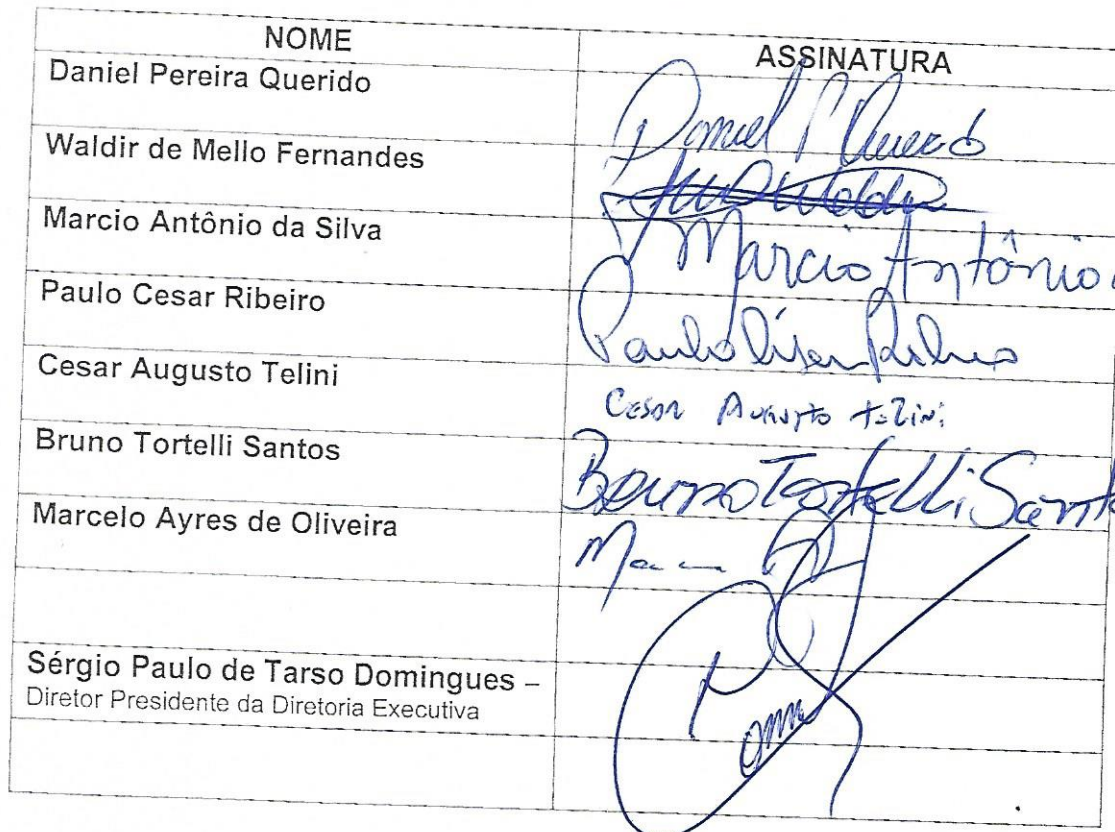 NOME ASSINATURA
Daniel Pereira Querido Daniel P Querido
Waldir de Mello Fernandes
Marcio Antônio da Silva Marcio Antônio
Paulo Cesar Ribeiro Paulo Cesar Ribeiro
Cesar Augusto Telini Cesar Augusto Telini
Bruno Tortelli Santos Bruno Tortelli Sant
Marcelo Ayres de Oliveira
Sérgio Paulo de Tarso Domingues –
Diretor Presidente da Diretoria Executiva